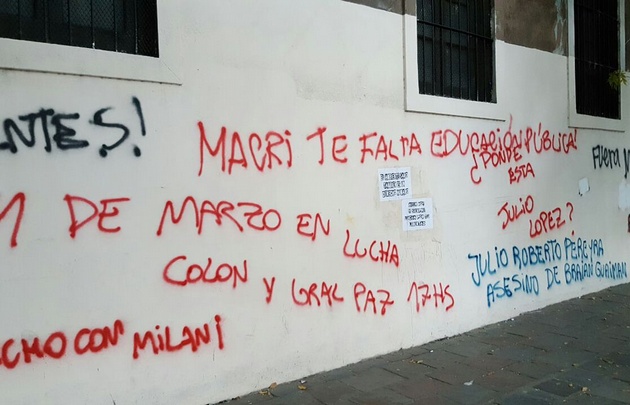 NTES!
MACRI TE FALTA EDUCACIÓN PÚBLICA!
¿DONDE
ESTA
JULIO
LOPEZ?
FUERA
1 DE MARZO EN LUCHA
COLON Y GRAL PAZ 17HS
CHO CON MILANI
JULIO ROBERTO PEREYRA
ASESINO DE BRAIAN GUAIMAN